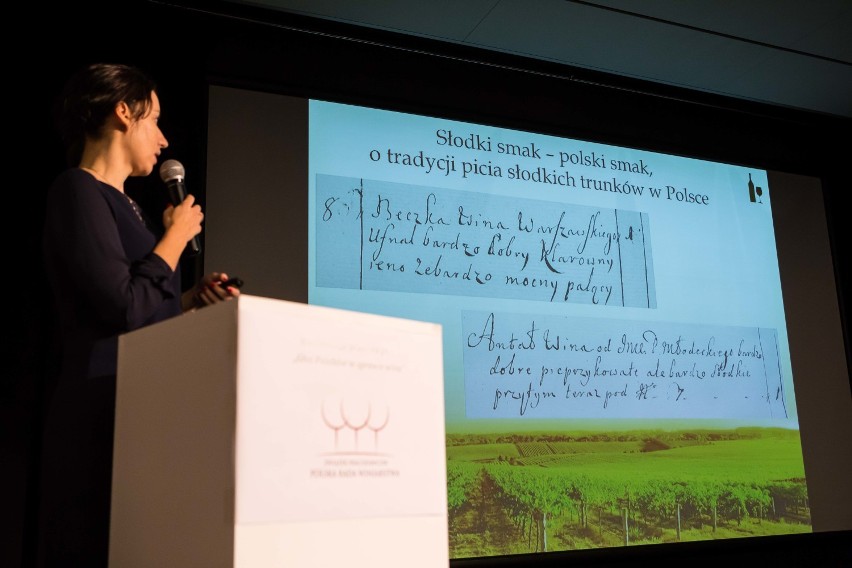 Słodki smak – polski smak,
o tradycji picia słodkich trunków w Polsce
8
Beczka Wina Warszawskiego
Ufnal bardzo dobry Klarowny
ieno Żebardzo mocny palący
Antał Wina od Młodeckiego bardzo
dobre pieprzykowate ale bardzo słodkie
przytym teraz pod N 7.
POLSKA RADA WINIARSTWA